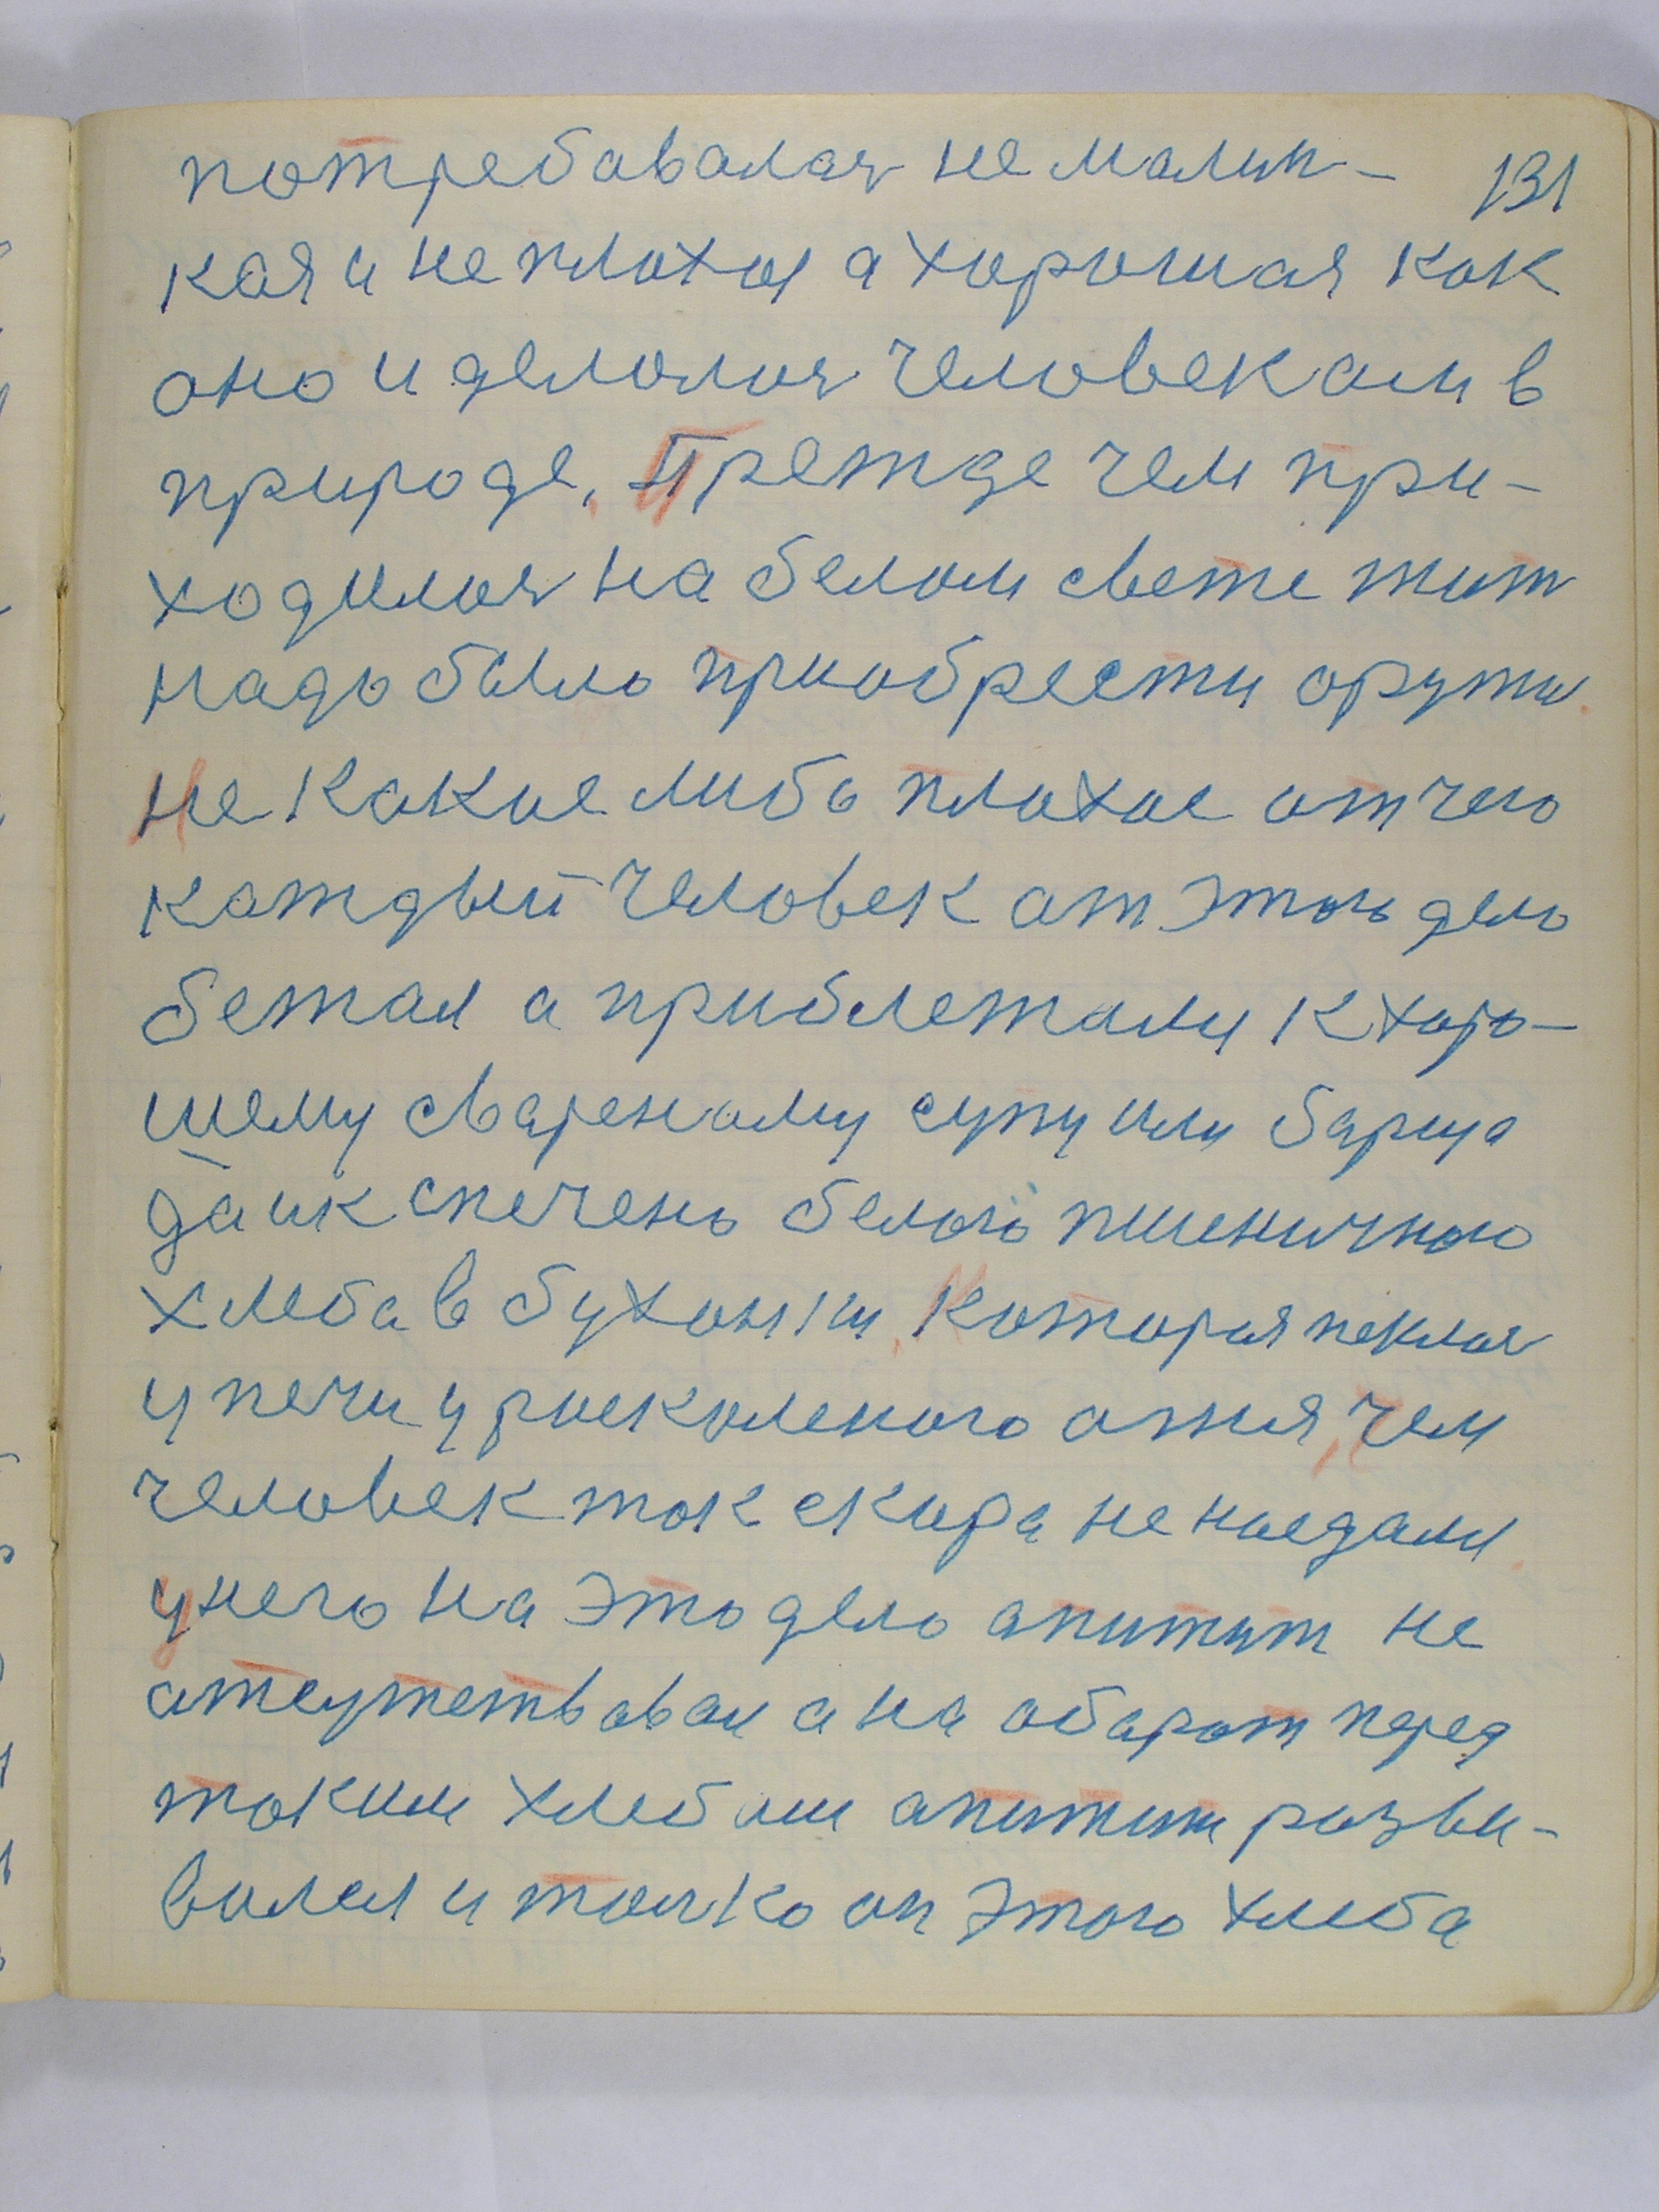 потребавалася не малин- 131
кая и не плохая а хорошая как
оно и делалося человекам в
природе. Претде чем при-
ходилося на белом свете жит
надо было приобрести оружи
не какое либо плохое от чего
каждый человек от этого дело
бежал а приближали к хоро-
шему свареному супу или барща
да и к спечено белого пшеничного
хлеба в буханки, которая пеклася
у печи у расколеного огня, чем
человек так скора не наедали
у него на это дело апитит не
атсутствовал а на обарот перед
таким хлебом апитит разви-
вался и толко от этого хлеба